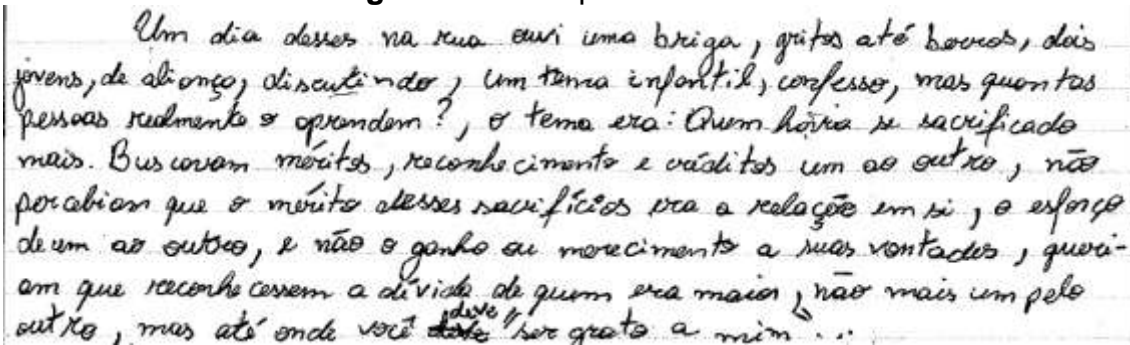 Um dia desses na rua ouvi uma briga, gritos até berros, dois
jovens, de aliança, discutindo, um tema infantil, confesso, mas quantas
pessoas realmente o aprendem?, o tema era: Quem havia se sacrificado
mais. Buscavam méritos, reconhecimento e créditos um ao outro, não
percebiam que o mérito desses sacrifícios era a relação em si, o esforço
de um ao outro, e não o ganho ou merecimento a suas vontades, queri-
am que reconhecessem a dívida de quem era maior, não mais um pelo
outro, mas até onde você deve "ser grato a mim"...